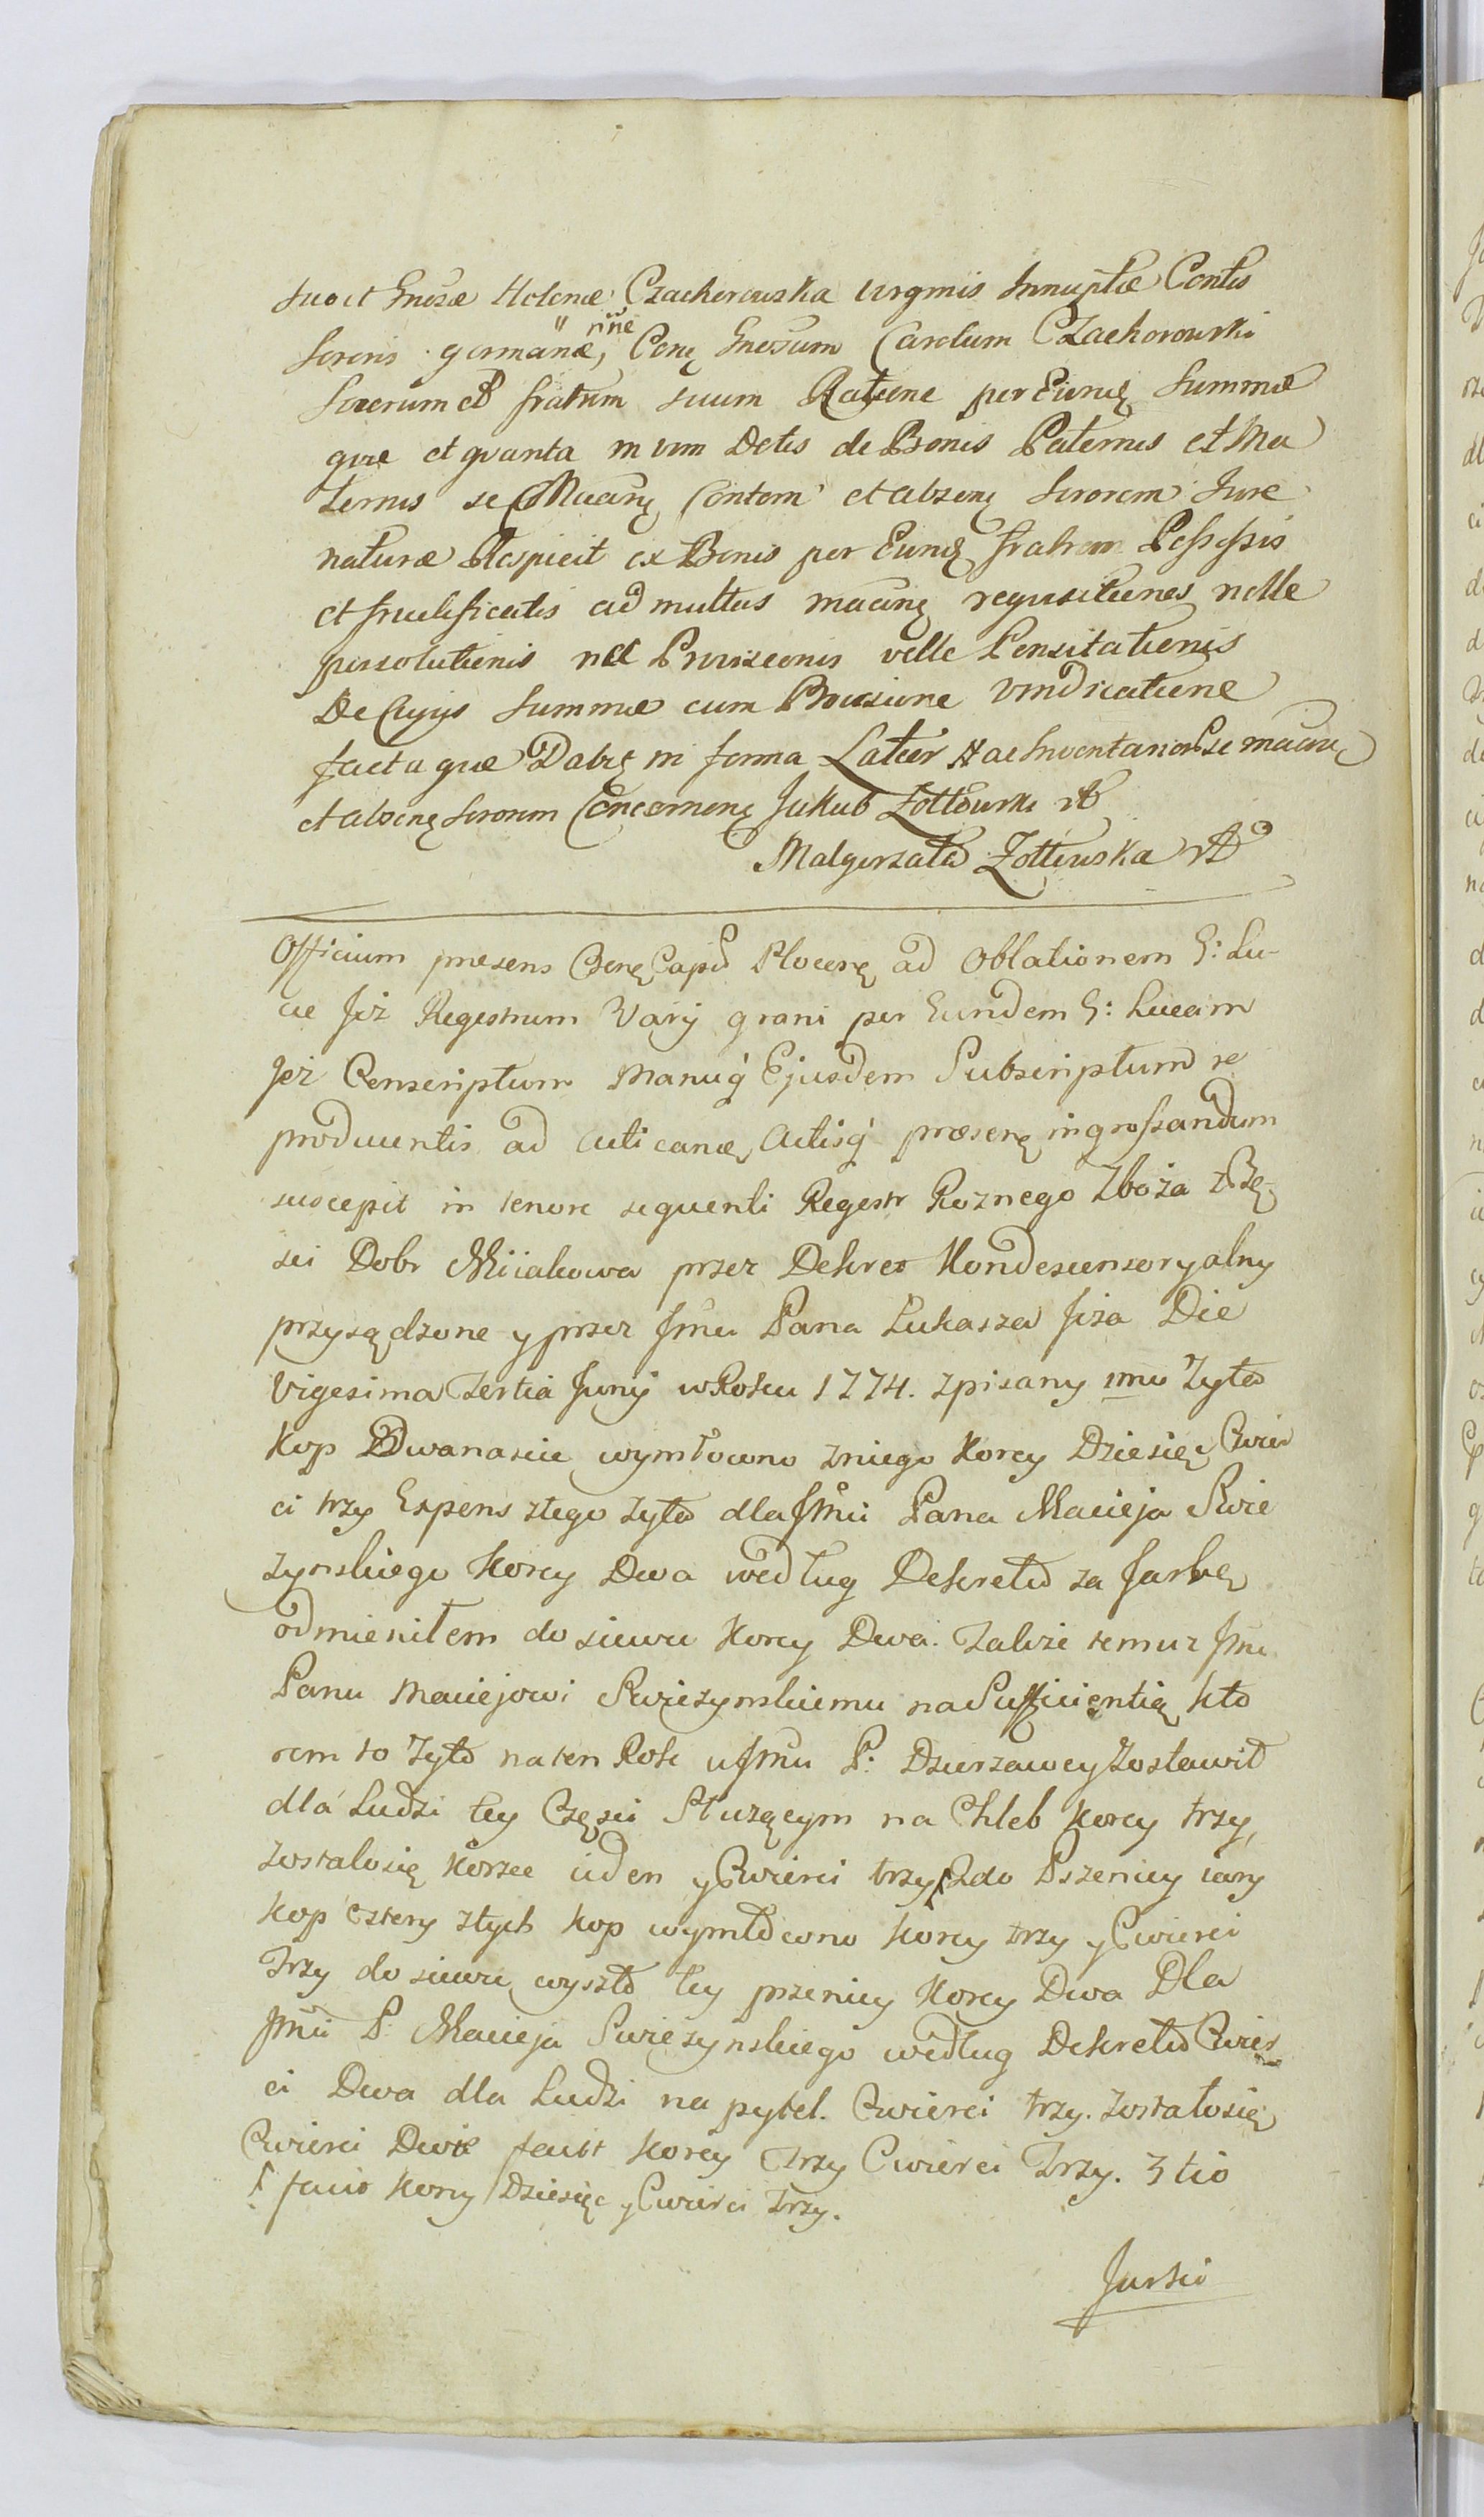 suo et Gnosæ Helenæ Czachorowska Virginis Innuptæ Contis
Sororis germanæ, nne Conę Gnosum Carolum Czachorowski
Sororum et fratrem suum Ratione per Eundę Summæ
quæ et quanta in vim Dotis de Bonis Paternis et Ma
ternis se Maanę Contom et absenę Sororem Jure
naturæ Respicit ex Bonis per Eundę fratrem Possessis
et fructificatis ad multas maanę requisitiones nolle
persolutionis nec Provisionis velle Pensitationis
De Cujus Summæ cum Provisione Vindicatione
facta quæ Dabię in forma Latior Hac Inventarionse maanę
et absenę Sororem Concernenę Jakub Zołtowski
Małgorzata Zołtowska
Officium præsens Cstrę Capld Plocenę ad Oblationem G: Lu-
cæ Jiż Regestrum Varij grani per Eundem G: Lucam
Jeż Conscriptum Manuq́ Ejusdem Subscriptum re
producentis ad acticanę Actisq́ præsenę ingrossandum
suscepit in tenore sequenti Regestr Roznego Zboża z Czę-
sci Dobr Miiakowa przez Dekret Kondescensoryalny
przysądzone y przez Jmci Pana Lukasza Jiża Die
Vigesima Tertia Junij w Roku 1774. zpisany 1mo Zyta
kop Dwanascie wymłocono zniego Korcy Dziesięc Cwier
ci trzy Expens ztego zyta dla Jmci Pana Macieja Swie
zynskiego Korcy Dwa według Dekretu za Jarkę
odmieniłem do siewu Korcy Dwa. Takze temuz Jmci
Panu Maciejowi Swiezynskiemu na Sufficientię kto
rem to Zyto na ten Rok u Jmci P: Dzierzawcy Zostawił
dla Ludzi tey Częsci Słuzącym na Chleb Korcy trzy,
zostało się Korzec ieden y Cwierci trzy 2do Pszenicy iary
Kop cztery z tych kop wymłocono Korcy trzy y Cwierci
Trzy do siewu wyszło tey przenicy Korcy Dwa Dla
Jmci P: Macieja Swiezynskiego według Dekretu Cwier
ci Dwa dla Ludzi na pytel. Cwierci trzy. zostało się
Cwierci Dwie facit Korcy Trzy Cwierci Trzy. 3tio
facit Korcy Dziesięc y Cwierci Trzy.
Jarki